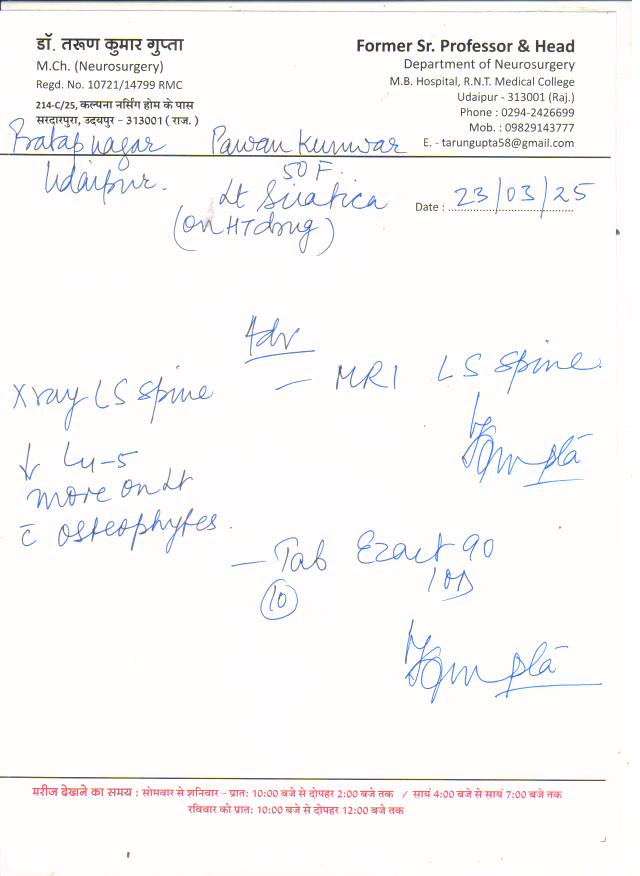 डॉ. तरूण कुमार गुप्ता
M.Ch. (Neurosurgery)
Regd. No. 10721/14799 RMC
214-C/25, कल्पना नर्सिंग होम के पास
सरदारपुरा, उदयपुर - 313001 ( राज. )
Former Sr. Professor & Head
Department of Neurosurgery
M.B. Hospital, R.N.T. Medical College
Udaipur - 313001 (Raj.)
Phone : 0294-2426699
Mob. : 09829143777
E. - tarungupta58@gmail.com
Pratapnagar
Udaipur.
Pawan Kunwar
50 F.
Lt Sciatica
(on HT drug)
Date : 23/03/25
Adv
Xray LS spine
↓ L4-5
more on Lt
c̄ osteophytes.
— MRI LS Spine.
Gupta
— Tab Ezact 90
10
1 OD
Gupta
मरीज देखने का समय : सोमवार से शनिवार - प्रात: 10:00 बजे से दोपहर 2:00 बजे तक / सायं 4:00 बजे से सायं 7:00 बजे तक
रविवार को प्रात: 10:00 बजे से दोपहर 12:00 बजे तक